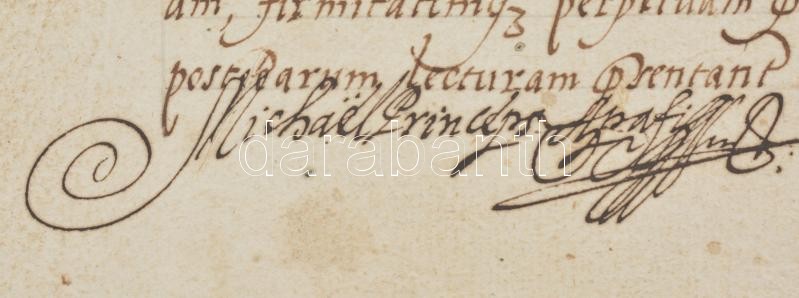 am, firmitatemq3 perpetuam
postearum lecturam
Michaël Princeps Apafi
darabanth